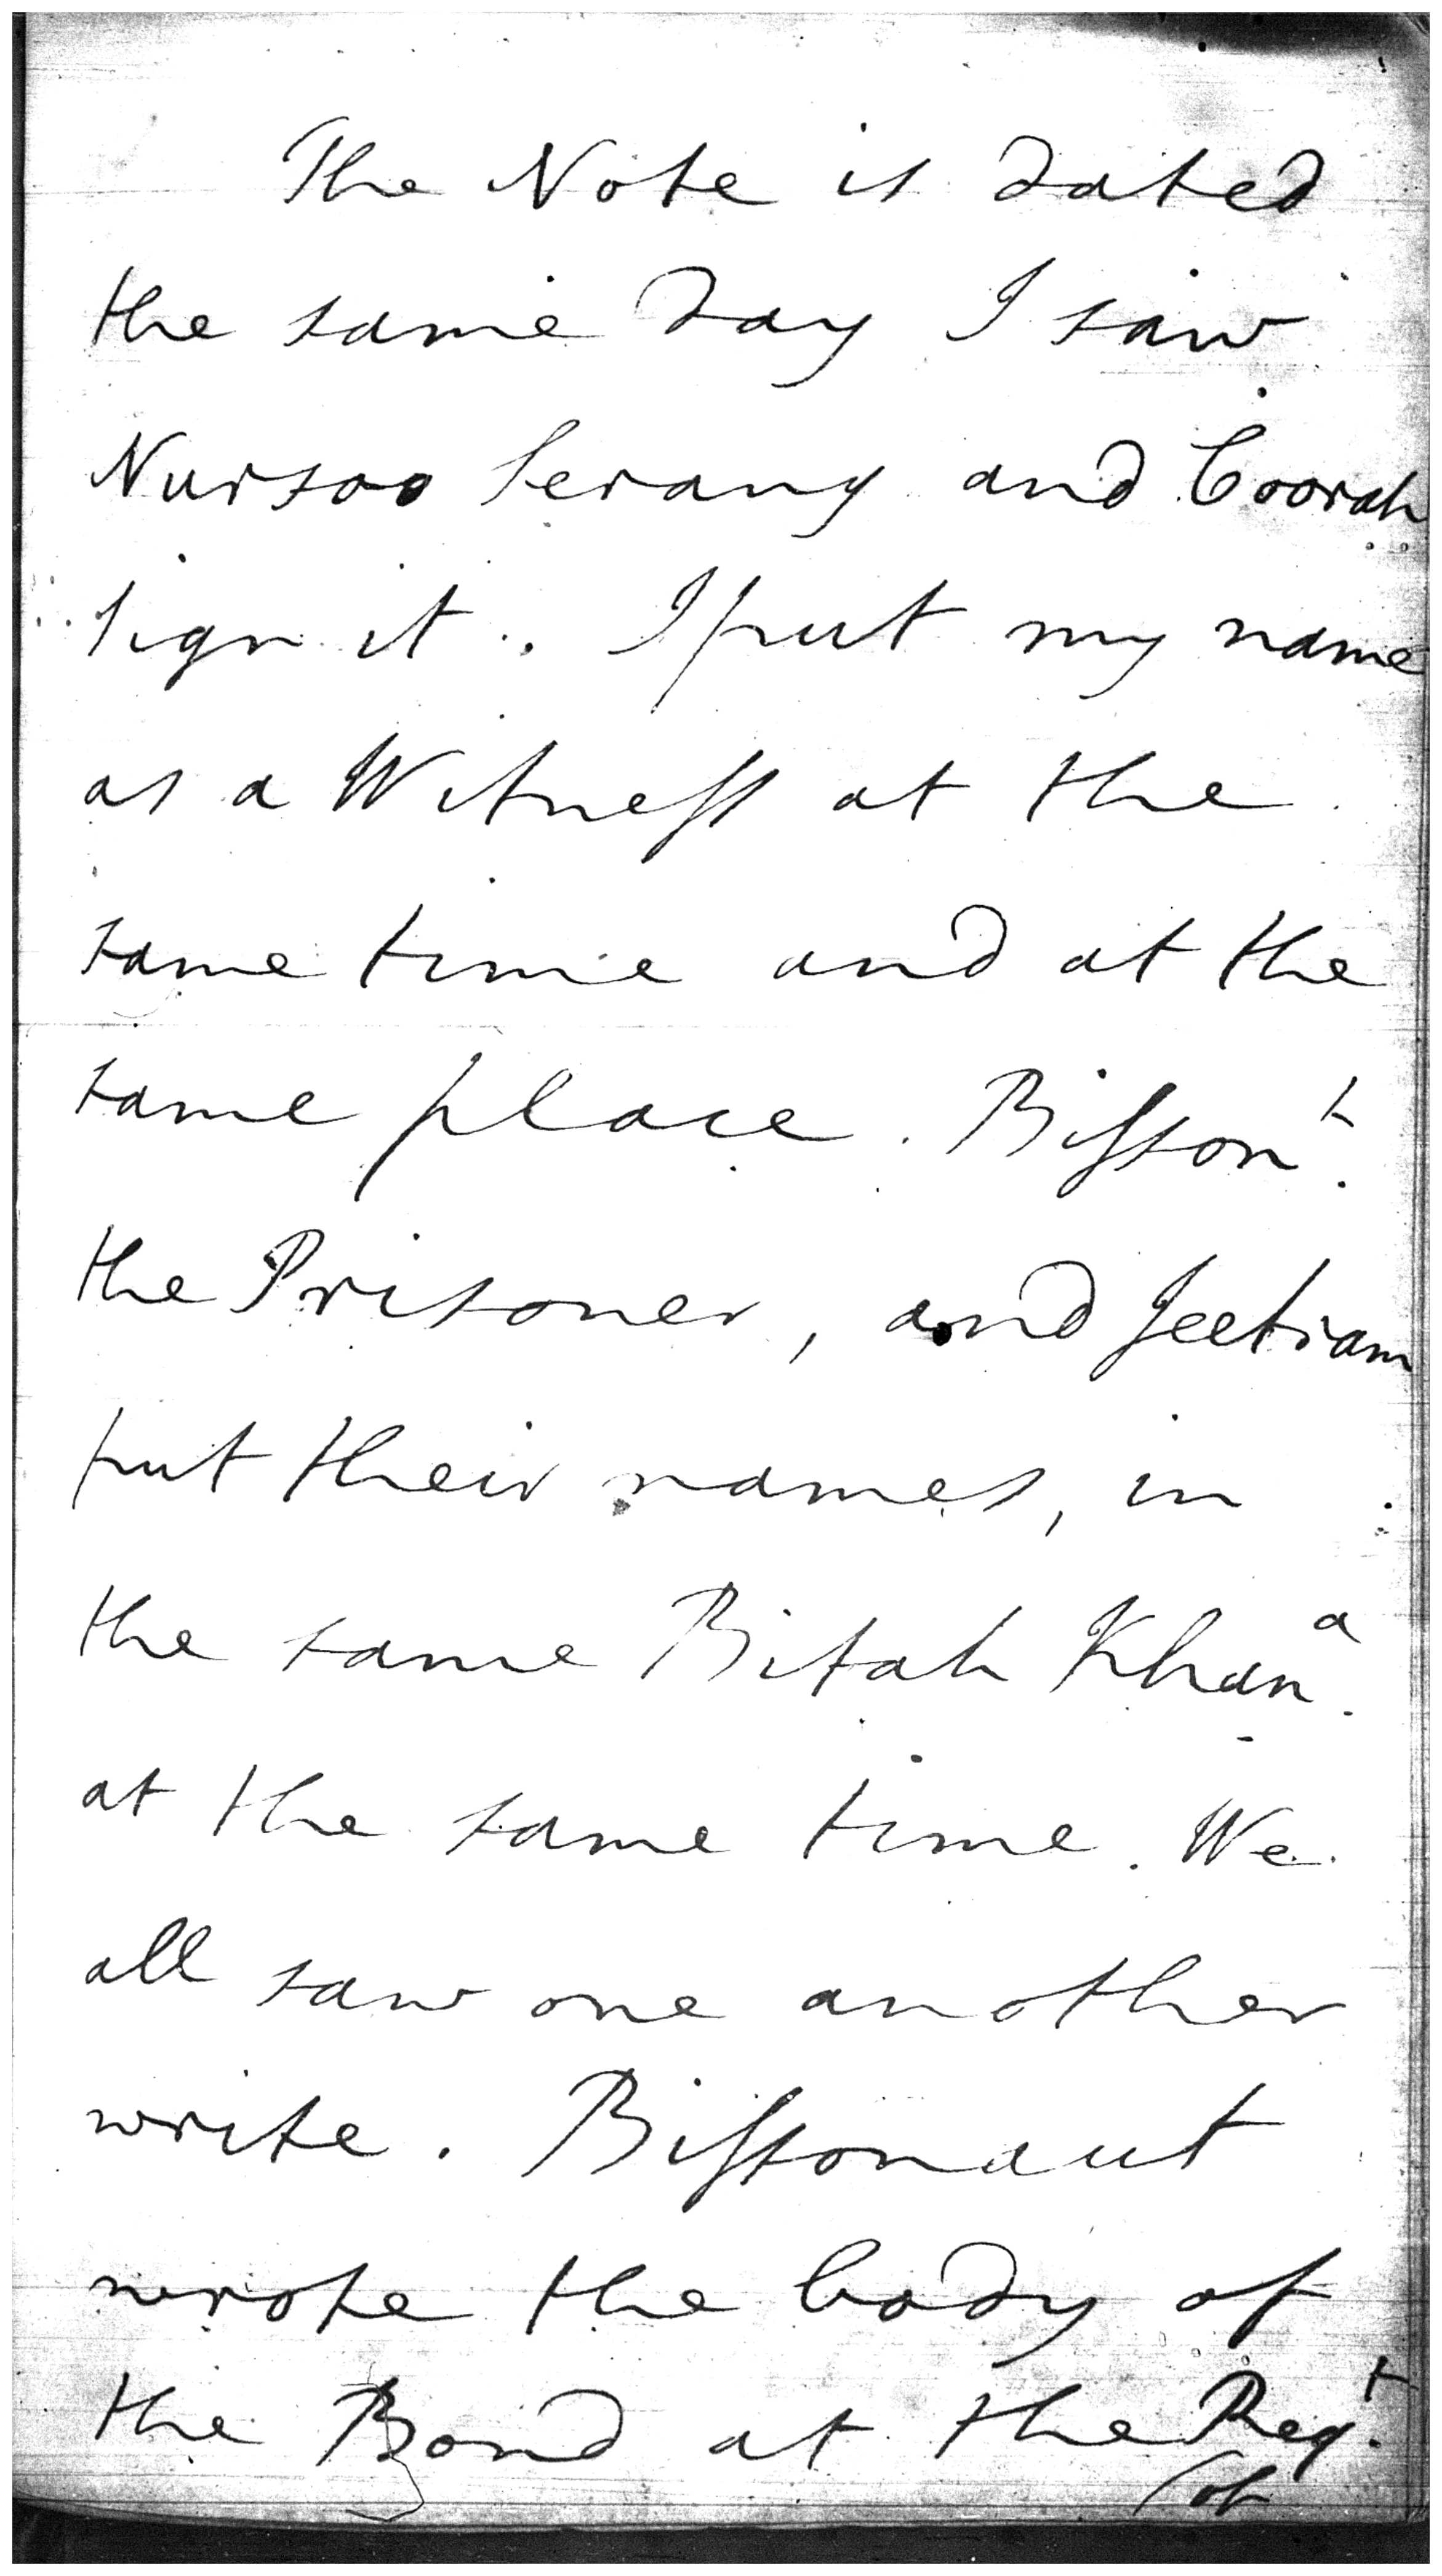 The Note is dated
the same day I saw
Nursoo Serang and Coorah
sign it. I put my name
as a Witness at the
same time and at the
same place. Bisson^t.
the Prisoner, and Jeetram
put their names, in
the same Bitah Khan^a.
at the same time. We
all saw one another
write. Bissonaut
wrote the body of
the Bond at the Req^t.
of